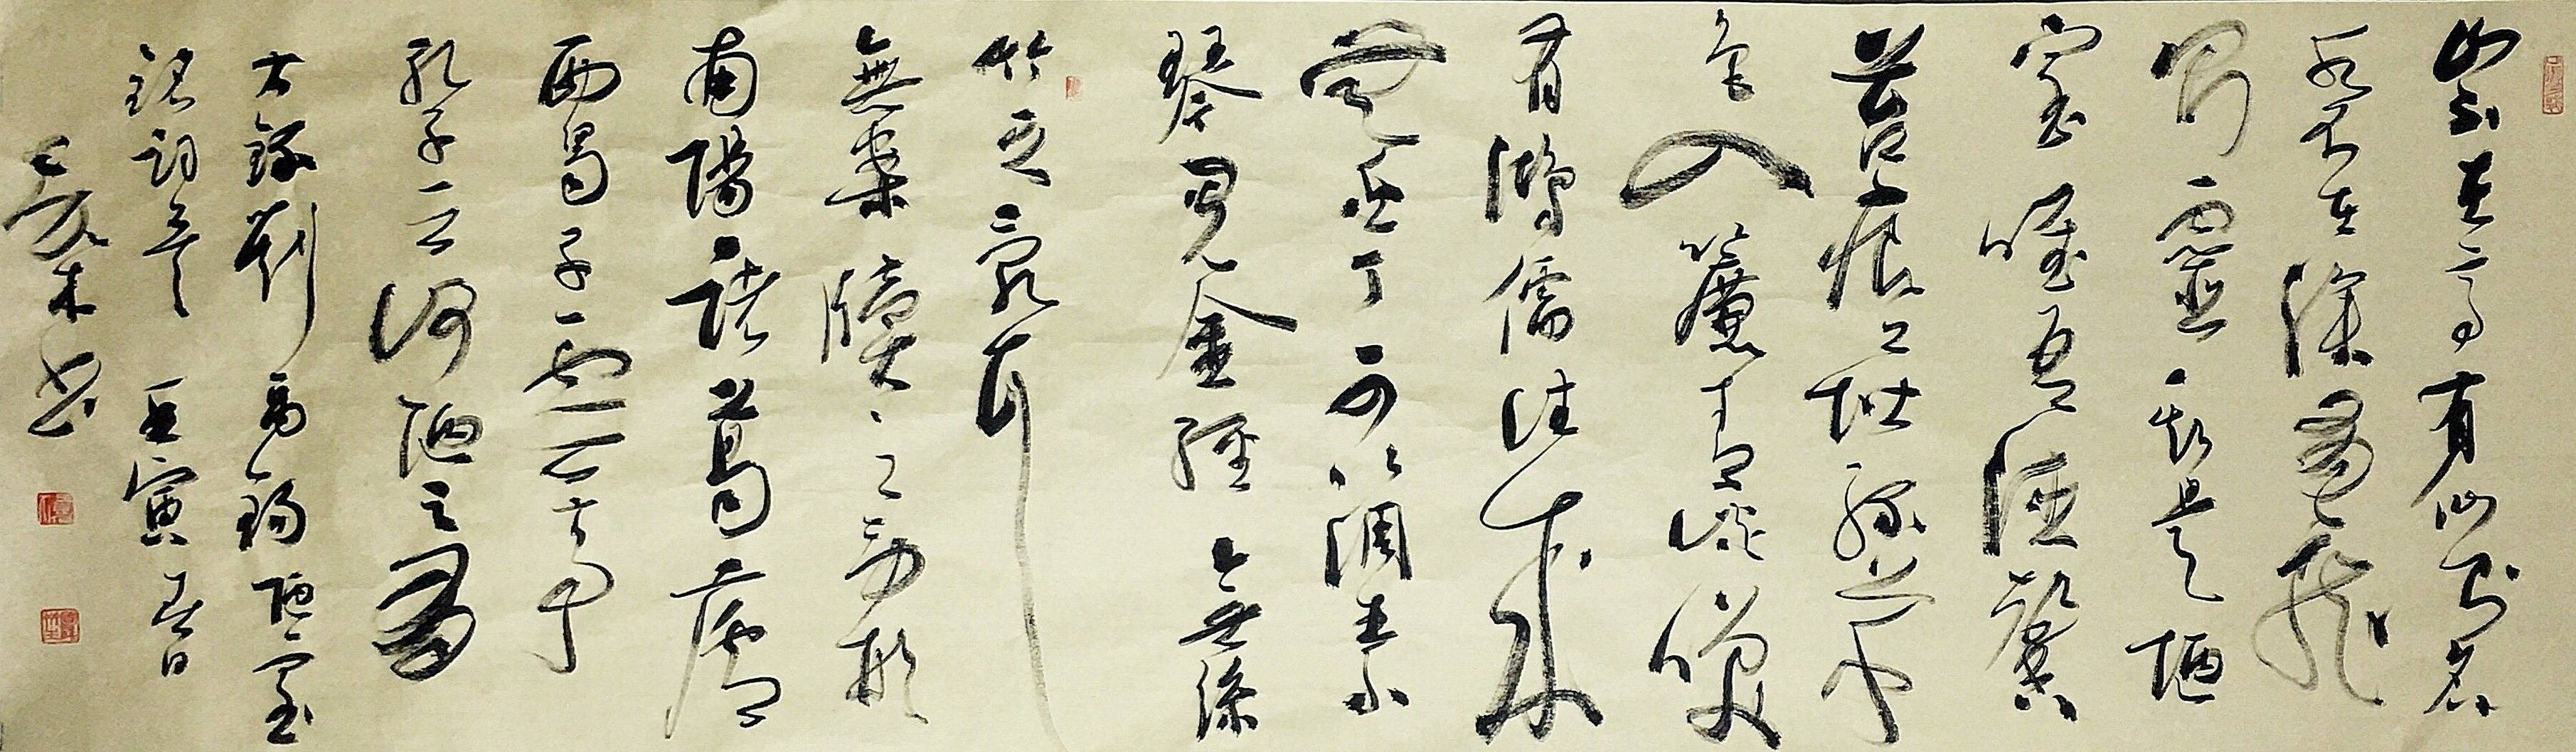 山不在高有仙则名
水不在深有龍
则靈斯是陋
室唯吾德馨
苔痕上堦綠草
色入簾青談笑
有鴻儒往來
無白丁可以調素
琴閱金經無絲
竹之亂耳
無案牘之劳形
南陽諸葛廬
西蜀子雲亭
孔子云何陋之有
右錄劉禹錫陋室
銘詞 壬寅春日
木書